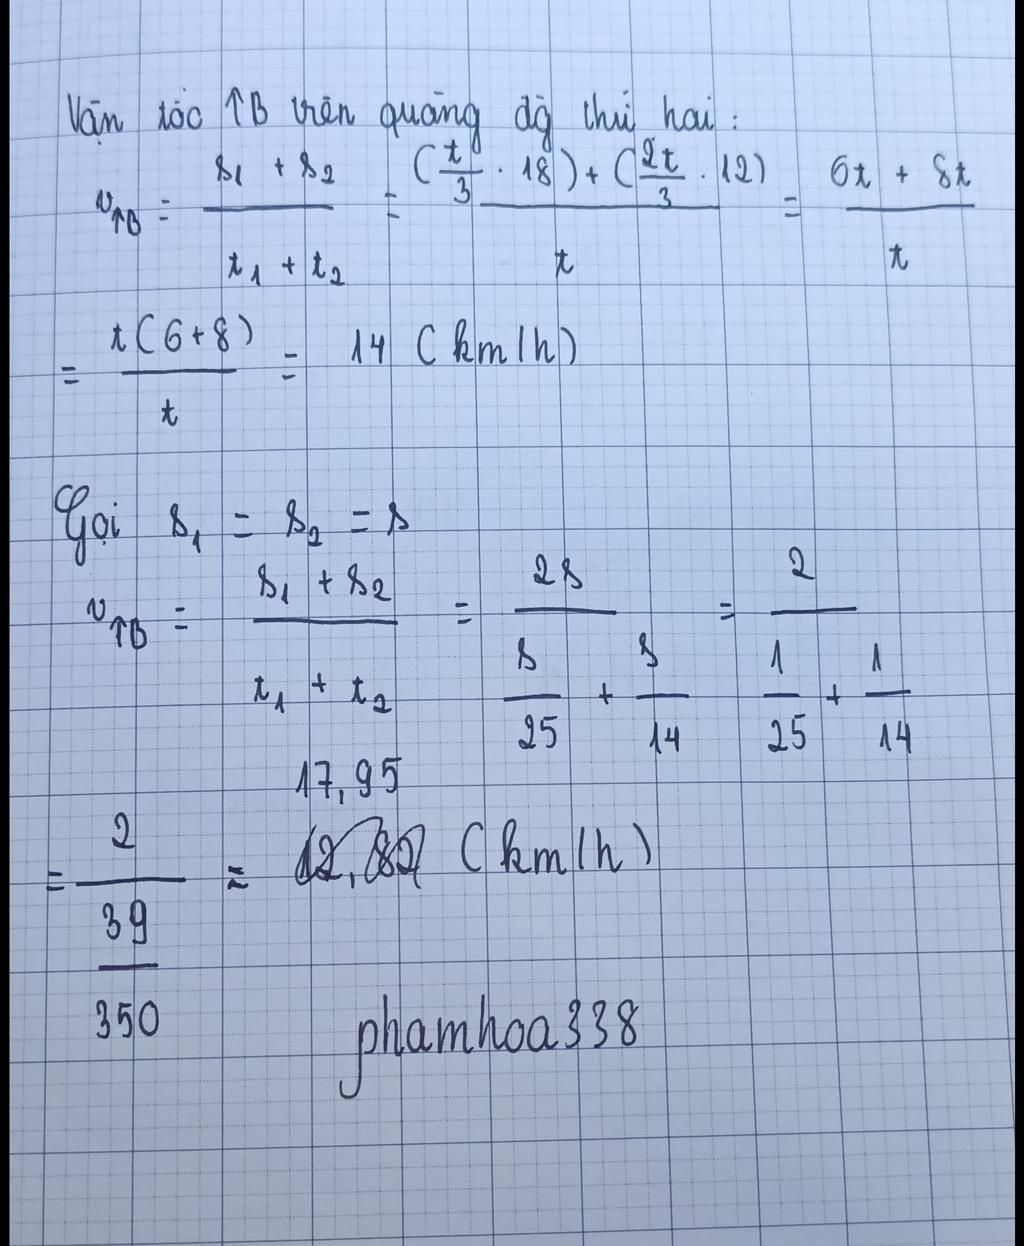 Vận tốc TB trên quãng đg thứ hai:
v_TB = (s₁ + s₂)/(t₁ + t₂) = ((t/3 . 18) + (2t/3 . 12))/t = (6t + 8t)/t
= t(6+8)/t = 14 (km/h)
Gọi s₁ = s₂ = s
v_TB = (s₁ + s₂)/(t₁ + t₂) = 2s/(s/25 + s/14) = 2/(1/25 + 1/14)
17,95
= 2/(39/350) ≈ (km/h)
phamhoa338